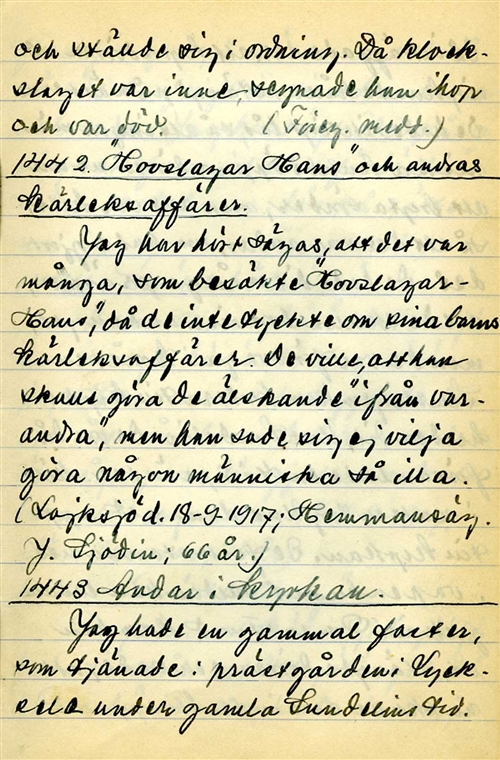 och ställde sig i ordning. Då klock-
slaget var inne, segnade hon ihop
och var död. (Föreg. medd.)
1442. "Hovslagar Hans" och andras
kärleksaffärer.
Jag har hört sägas, att det var
många, som besökte "Hovslagar-
Hans", då de inte tyckte om sina barns
kärleksaffärer. De ville, att han
skulle göra de älskande "ifrån var-
andra", men han sade sig ej vilja
göra någon människa så illa.
(Lajksjö d. 18-9-1917; Hemmansäg.
J. Sjödin; 66 år.)
1443 Andar i kyrkan.
Jag hade en gammal faster,
som tjänade i prästgården i Lyck-
sele under gamla Sundelins tid.